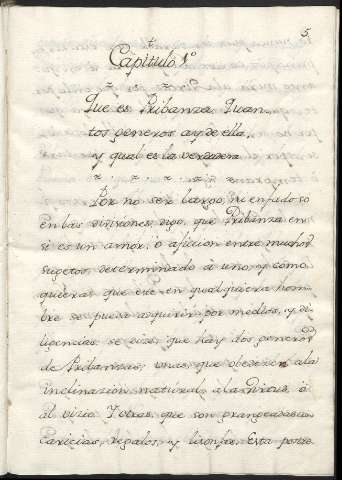 5
Capitulo 1º
Que es Pribanza, Quan-
tos generos ay de ella,
y qual es la verdadera
Por no ser largo, ni enfadoso
en las diviciones, digo, que Pribanza en
si es un amor, ó aficion entre muchos
sugetos, determinado à uno, y como
quiera que este en qualquiera hom-
bre se puede adquirir por medios, y di-
ligencias, se dize, que hay dos generos
de Pribanzas, unas, que obedecen a la
inclinazion natural, a la Virtud, ò
al vizio. Y otras, que son grangeadas a
Caricias, regalos, y lisonjas. Esta postre